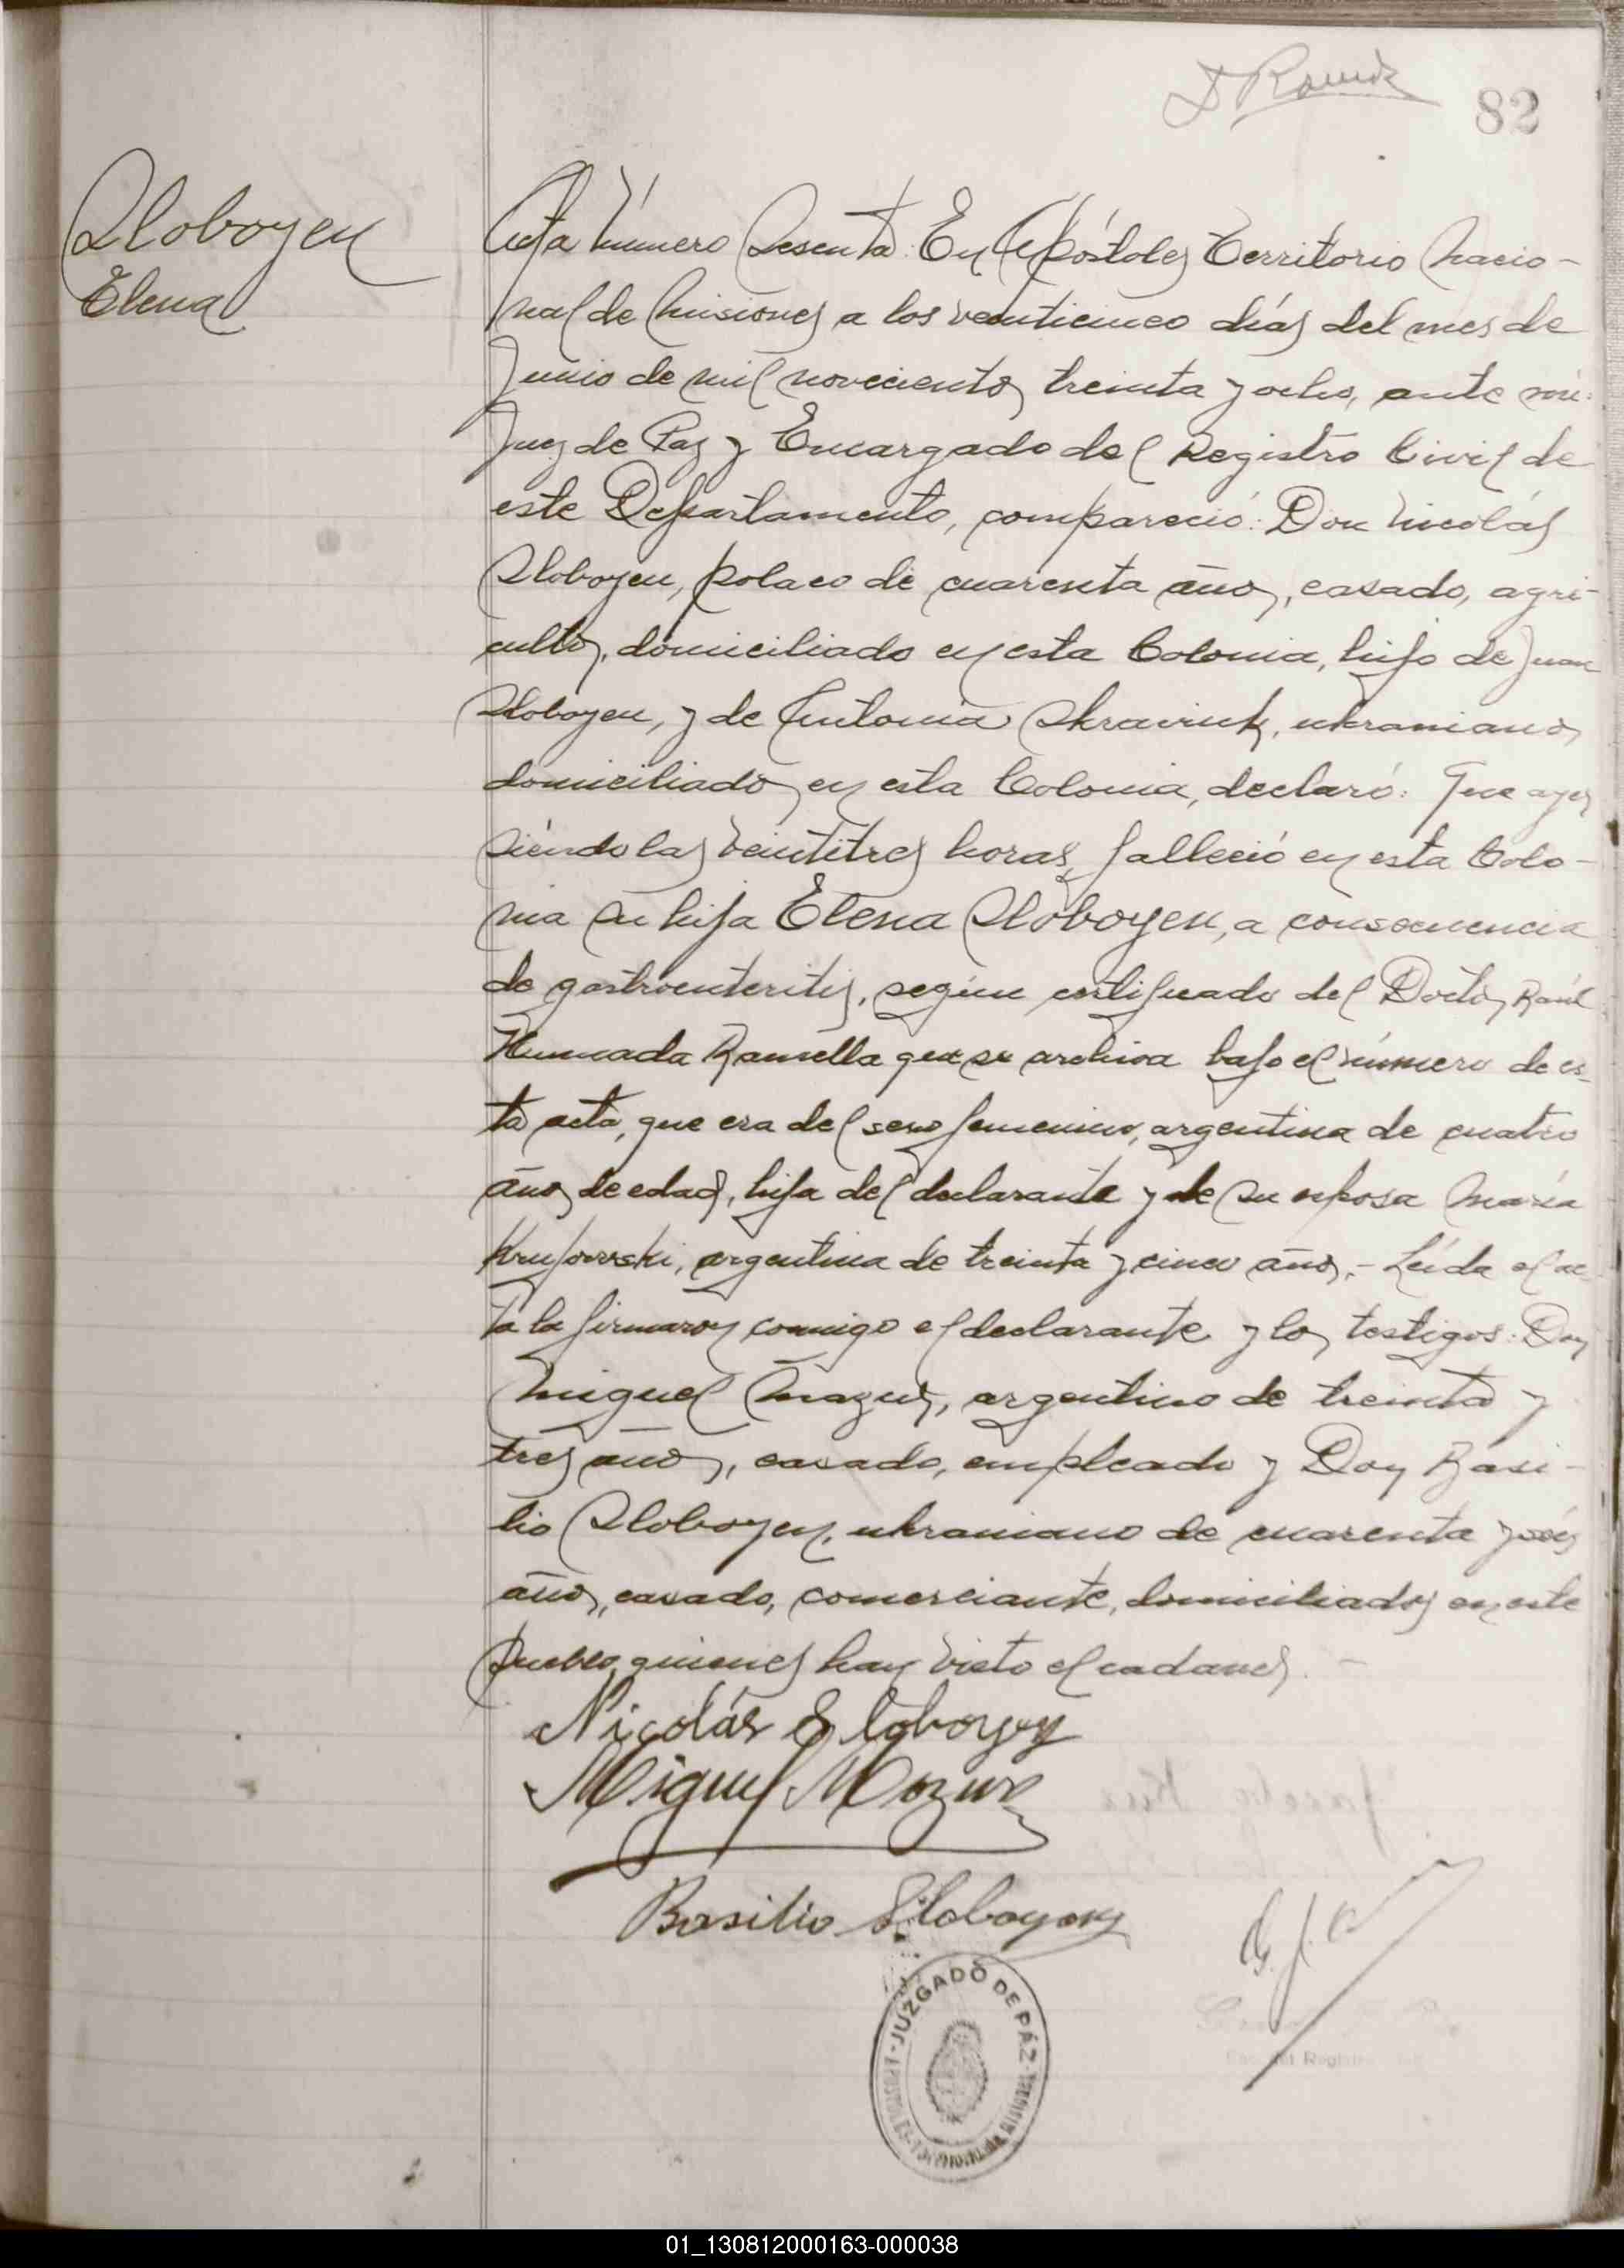 82
Sloboyen
Elena
Acta número Sesenta: En Apóstoles Territorio Nacio-
nal de Misiones a los veinticinco días del mes de
Junio de mil novecientos treinta y ocho, ante mí:
Juez de Paz y Encargado del Registro Civil de
este Departamento, compareció: Don Nicolás
Sloboyen, polaco de cuarenta años, casado, agri-
cultor, domiciliado en esta Colonia, hijo de Juan
Sloboyen, y de Antonia, ukranianos
domiciliados en esta Colonia, declaró: Que ayer
siendo las veintitres horas, falleció en esta Colo-
nia su hija Elena Sloboyen, a consecuencia
de gastroenteritis, según certificado del Doctor Raúl
Ahumada Ramella que se archiva bajo el número de es-
ta acta, que era del sexo femenino, argentina de cuatro
años de edad, hija del declarante y de su esposa María
argentina de treinta y cinco años.- Leída el ac-
ta la firmaron conmigo el declarante y los testigos: Don
Miguel Mazur, argentino de treinta y
tres años, casado, empleado y Don Basi-
lio Sloboyen, ukraniano de cuarenta y seis
años, casado, comerciante, domiciliados en este
Pueblo, quienes han visto el cadaver. -
Nicolás Sloboyen
Miguel Mazur
Basilio Sloboyen
JUZGADO DE PÁZ
01_130812000163-000038